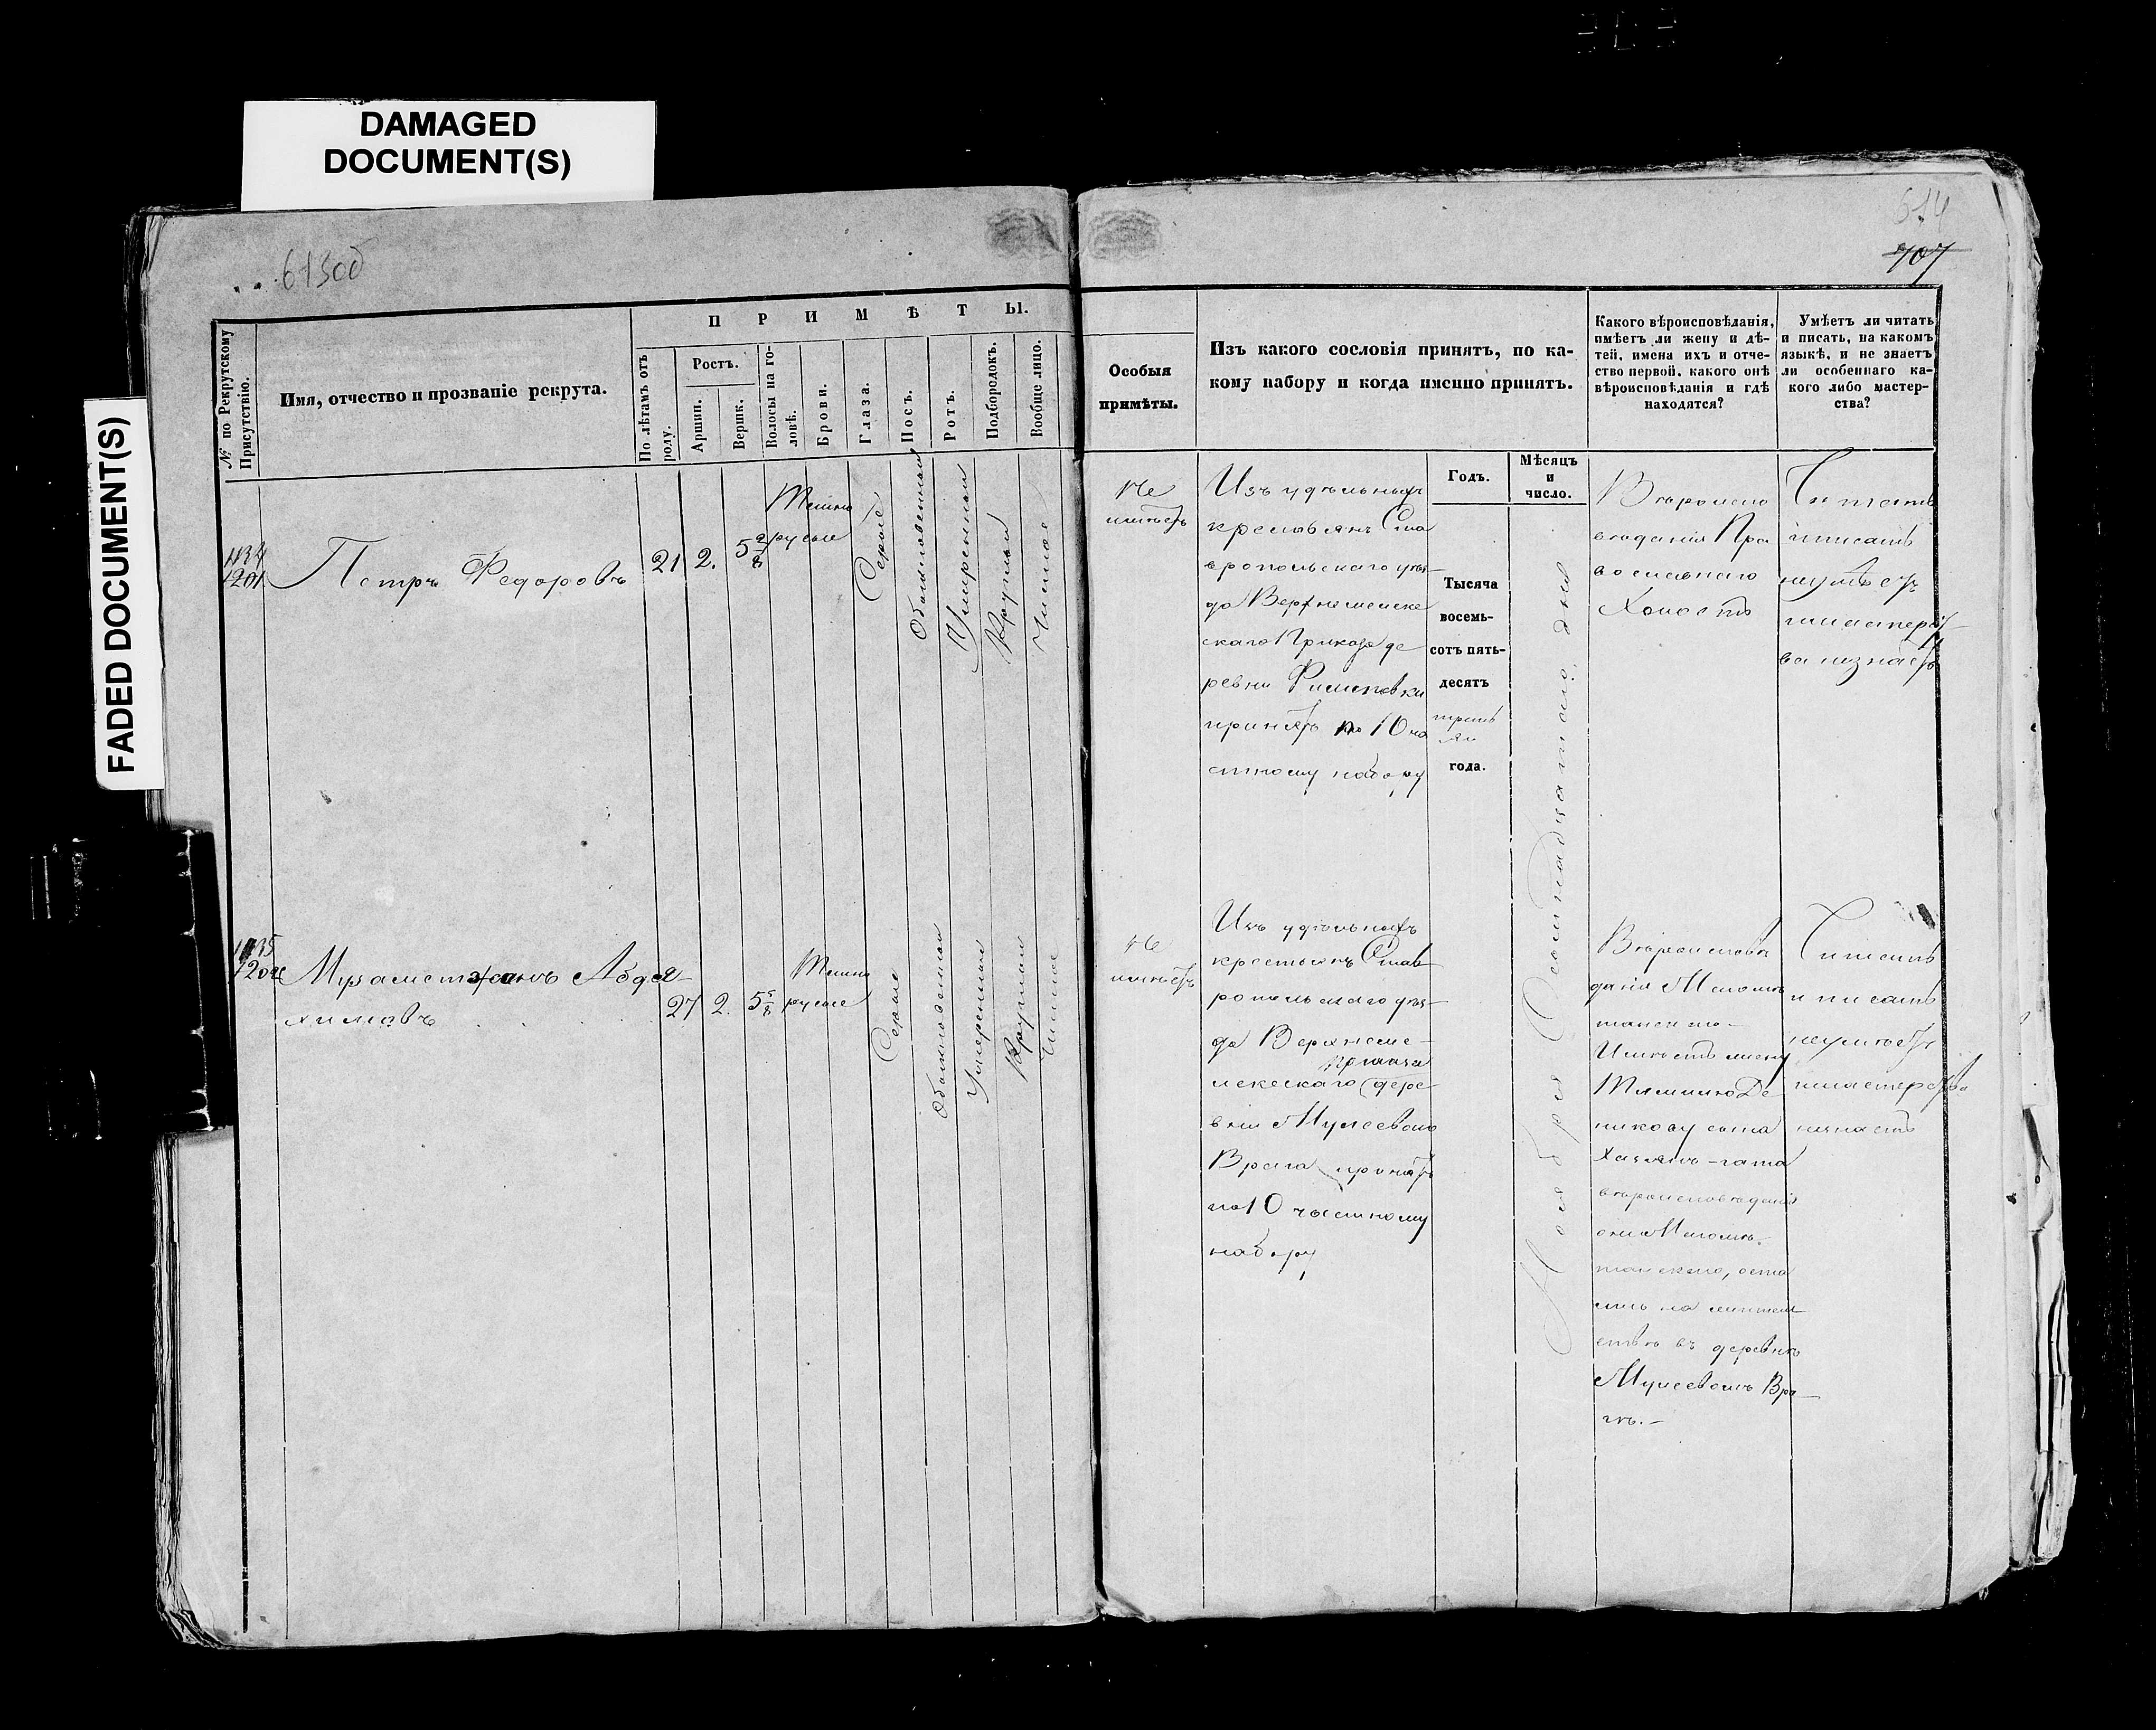 DAMAGED
DOCUMENT(S)
FADED DOCUMENT(S)
613об
614
707
№ по Рекрутскому
Присутствію.
Имя, отчество и прозваніе рекрута.
ПРИМѢТЫ.
По лѣтамъ отъ
роду.
Ростъ.
Аршин.
Вершк.
Волосы на го-
ловѣ.
Брови.
Глаза.
Носъ.
Ротъ.
Подбородокъ.
Вообще лицо.
Особыя
примѣты.
Изъ какого сословія принятъ, по ка-
кому набору и когда именно принятъ.
Какого вѣроисповѣданія,
имѣетъ ли жену и дѣ-
тей, имена ихъ и отче-
ство первой, какого онѣ
вѣроисповѣданія и гдѣ
находятся?
Умѣетъ ли читать
и писать, на какомъ
языкѣ, и не знаетъ
ли особеннаго ка-
кого либо мастер-
ства?
Годъ.
Мѣсяцъ
и
число.
1134
1201
Петръ Федоровъ
21
2.
5 2/8
Темно
русые
Серые
Обыкновенный
Умеренный
Круглый
Чистое
Не
имѣетъ
Изъ удѣльныхъ
крестьянъ Ста
вропольскаго уѣз-
да Верхнемелеке
скаго Приказа де
ревни Филиповки
принятъ по 10 ча
стному набору
Тысяча
восемь-
сотъ пять-
десятъ
третья
го
года.
Ноября Семнадцатаго дня
Вѣроиспо
вѣданія Пра
вославнаго
Холостъ
Читать
и писать
неумѣетъ
и мастерст
ва незнаетъ
1135
1202
Мухаметжанъ Абдра-
химовъ
27
2.
5 5/8
Темно
русые
Серые
Обыкновенный
Умеренный
Круглый
Чистое
Не
имѣетъ
Изъ удѣльныхъ
крестьянъ Став
ропольскаго уѣз-
да Верхнеме-
Приказа
лекескаго дере
вни Мулеевого
Врага принятъ
по 10 частному
набору
Вѣроисповѣ
данія Магоме
танскаго-
Имѣетъ жену
сына
вѣроисповѣданія
они Магоме-
танскаго, оста
лись на житель
ствѣ въ деревнѣ
Мулеевомъ Вра-
гѣ.-
Читать
и писать
неумѣетъ
и мастерства
незнаетъ